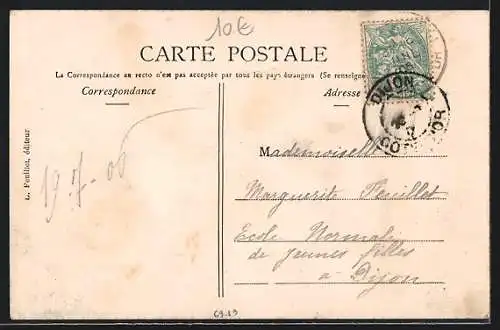 10€
CARTE POSTALE
La Correspondance au recto n'est pas acceptée par tous les pays étrangers (Se renseigne
Correspondance
Adresse
DIJON
COTE D'OR
C. Feuillot, éditeur
19-7-06
Mademoiselle
Marguerite Feuillet
Ecole Normale
de jeunes filles
à Dijon
69.19